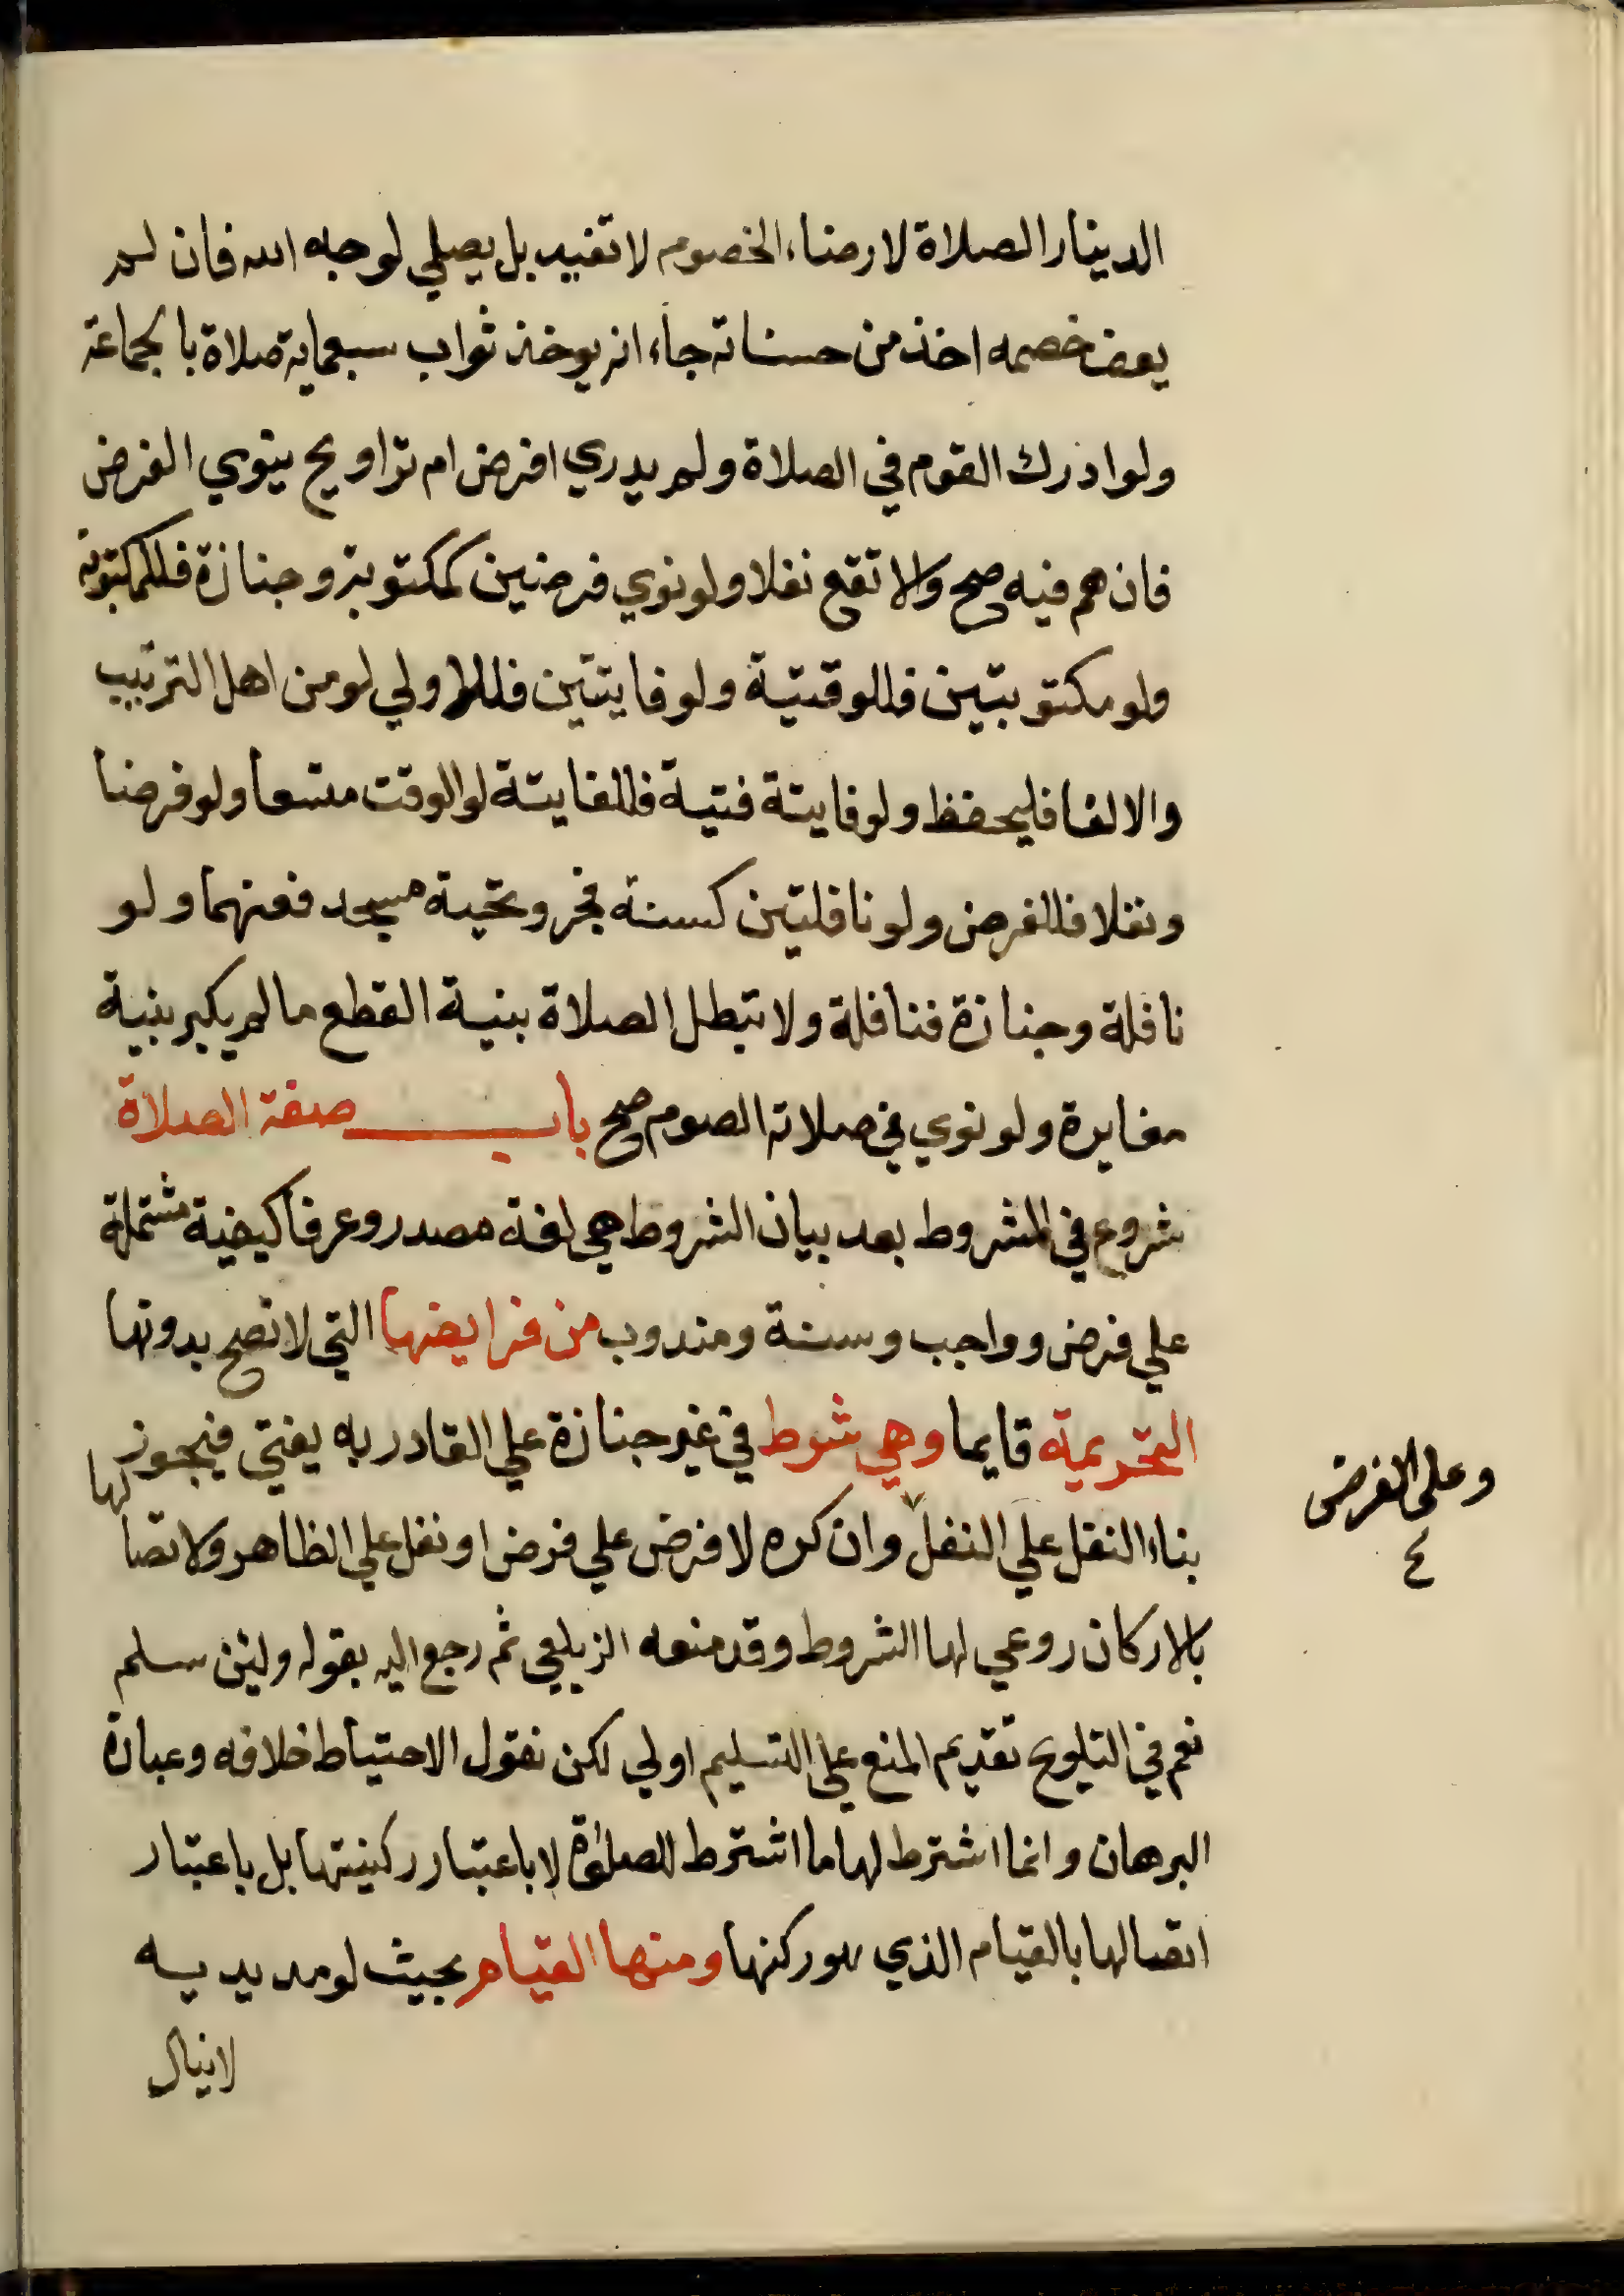 الدينار الصلاة لارضاء الخصوم لا تفيد بل يصلي لوجه الله فان لم
يعف خصمه اخذ من حسناته جاء انه يوخذ ثواب سبعماية صلاة بالجماعة
ولو ادرك القوم في الصلاة ولم يدري افرض ام تراويح ينوي الفرض
فان هم فيه صح والا تقع نفلا ولو نوي فرضين كمكتوبة وجنازة فللمكتوبة
ولو مكتوبتين فللوقتية ولو فايتتين فللاولي لو من اهل الترتيب
والا لغا فليحفظ ولو فايتة فتية فللفايتة لو الوقت متسعا ولو فرضا
ونفلا فللفرض ولو نافلتين كسنة فجر وتحية مسجد فعنهما ولو
نافلة وجنازة فنافلة ولا تبطل الصلاة بنية القطع ما لم يكبر بنية
مغايرة ولو نوي في صلاته الصوم صح باب صفة الصلاة
شروع في المشروط بعد بيان الشروط هي لغة مصدر وعرفا كيفية مشتملة
علي فرض وواجب وسنة ومندوب من فرايضها التي لا تصح بدونها
التحريمة قايما وهي شرط في غير جنازة علي القادر به يفتي فيجوز لها
بناء النفل علي النفل وان كره لا فرض علي فرض او نفل علي الظاهر ولاتصا
وعلى الفرض
٤
بالاركان روعي لها الشروط وقد منعه الزيلعي ثم رجع اليه بقوله ولئن سلم
نعم في التلويح تقديم المنع علي التسليم اولي لكن نقول الاحتياط خلافه وعبارة
البرهان وانما اشترط لها ما اشترط للصلوة لا باعتبار ركنيتها بل باعتبار
اتصالها بالقيام الذي هو ركنها ومنها القيام بحيث لو مد يديه
لا ينال